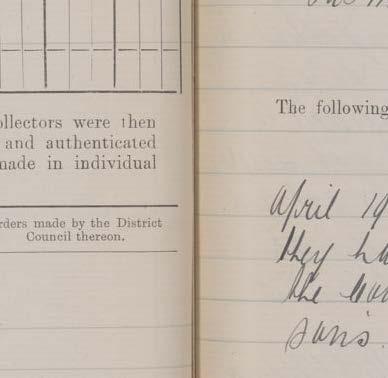 ollectors were then
and authenticated
made in individual
rders made by the District
Council thereon.
The following
April 19
they ha
the